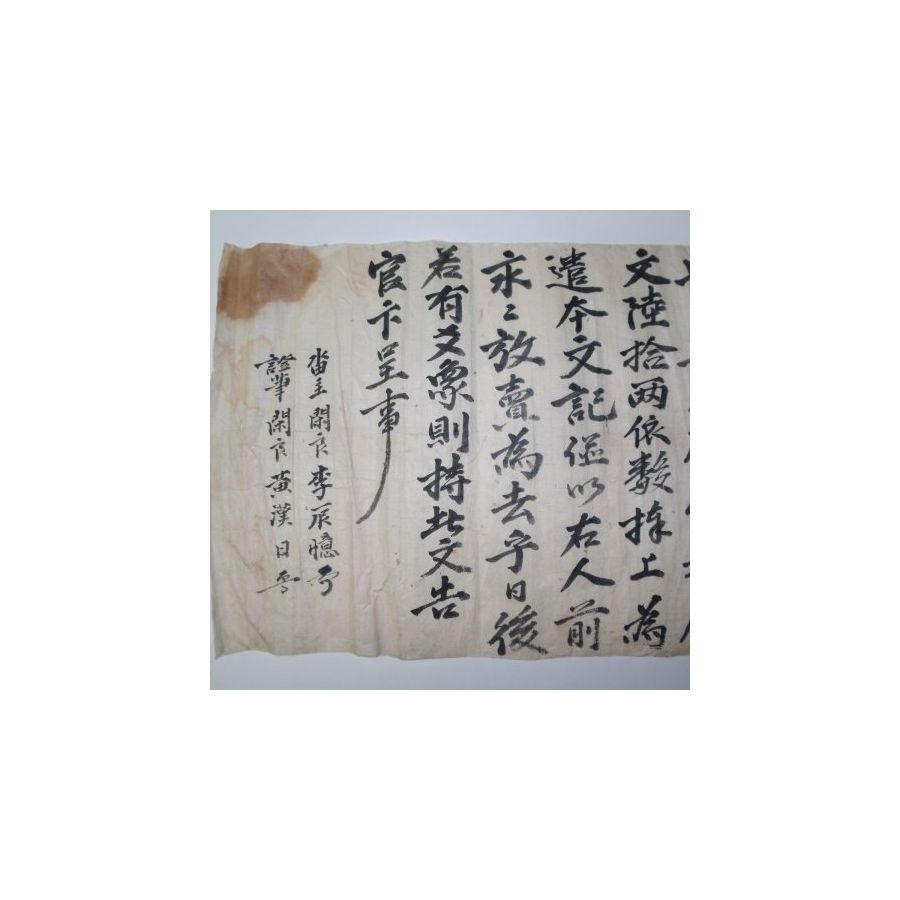 文陸拾两依数捧上為
遣本文記並以右人前
永〻放賣為去乎日後
若有爻象則持此文告
官卞呈事
畓主閑良李辰憶
證筆閑良黃漢日